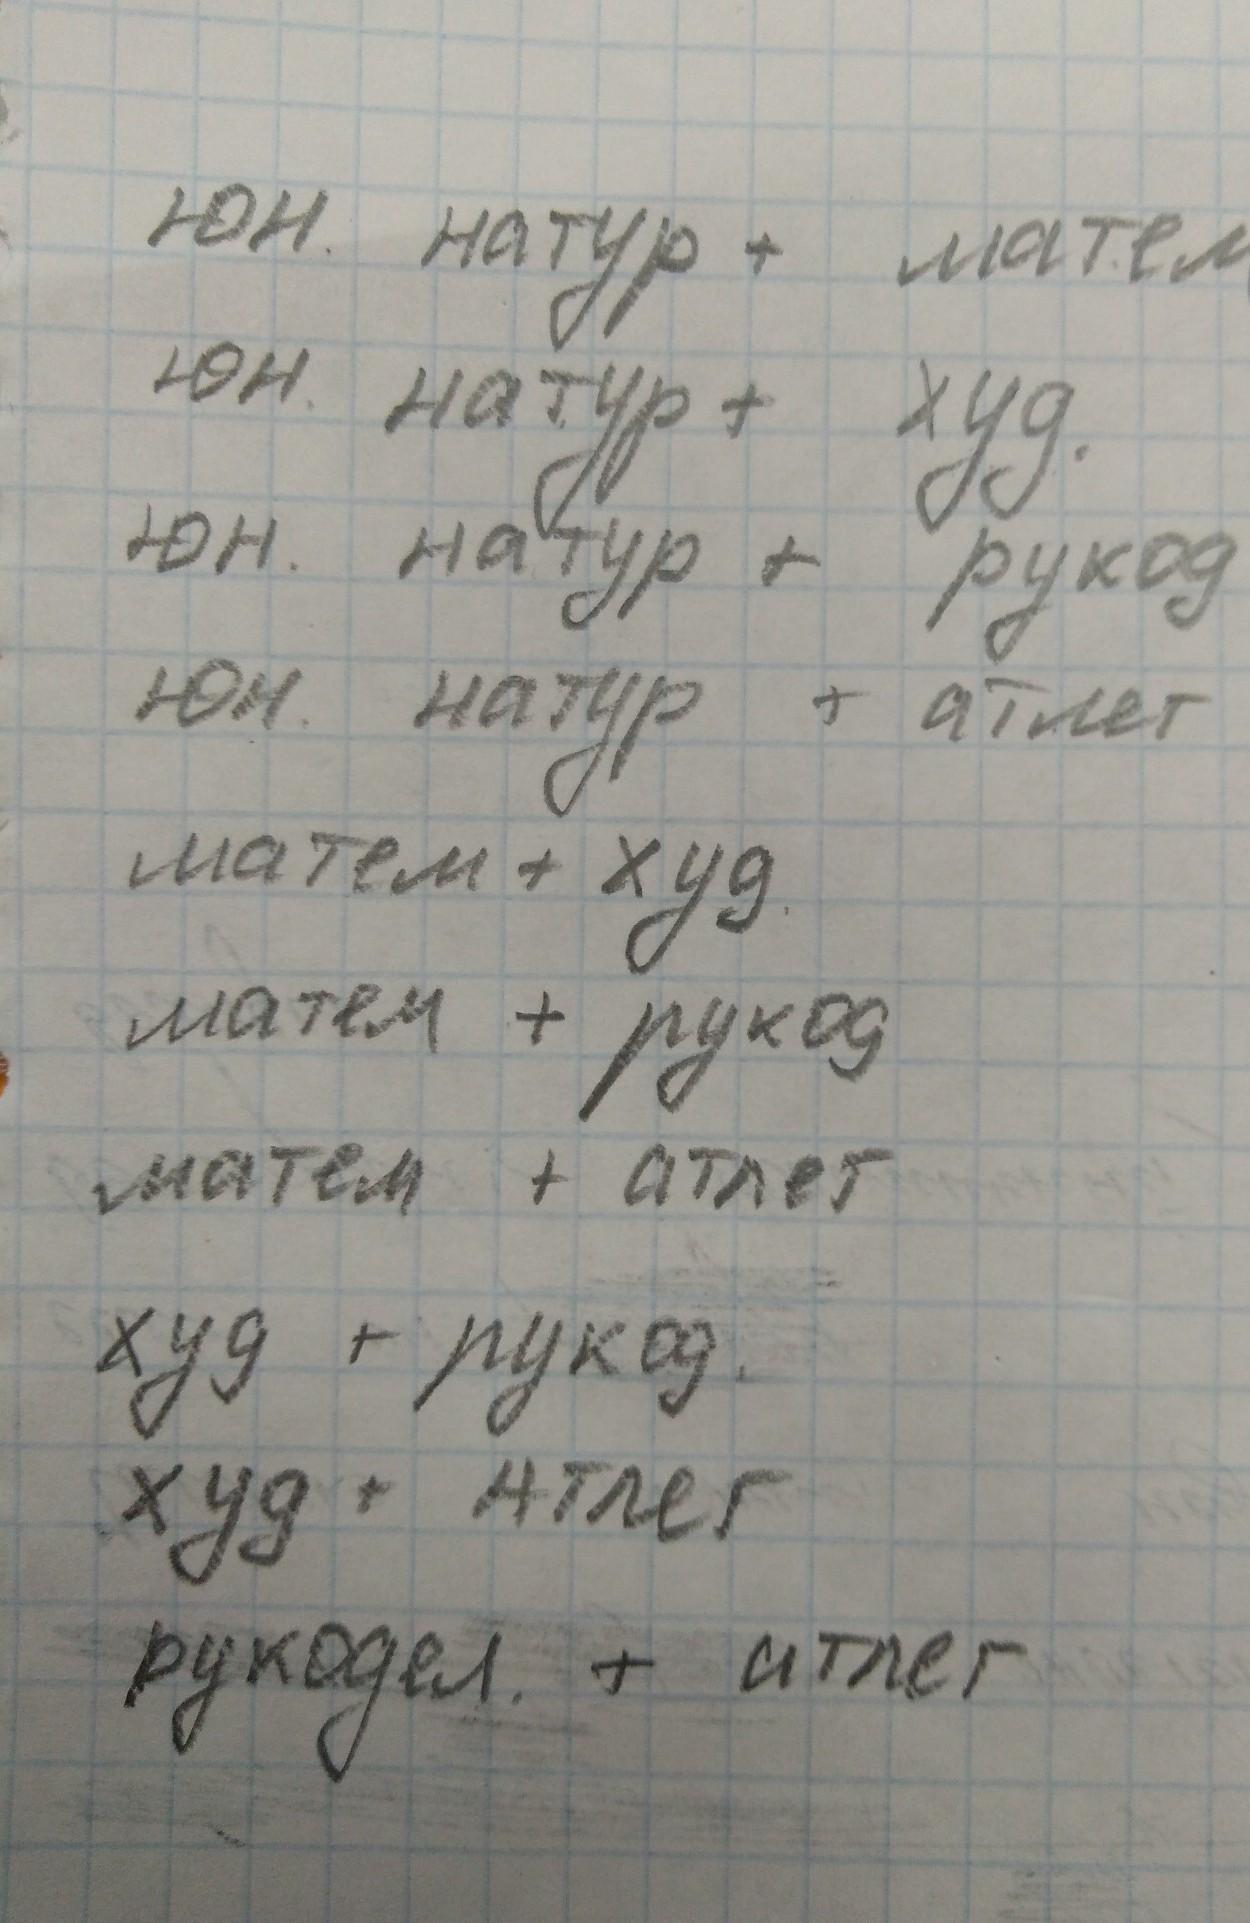 юн. натур + матем
юн. натур + худ.
юн. натур + рукод
юн. натур + атлет
матем + худ.
матем + рукод
матем + атлет
худ + рукод.
худ + атлет
рукодел. + атлет